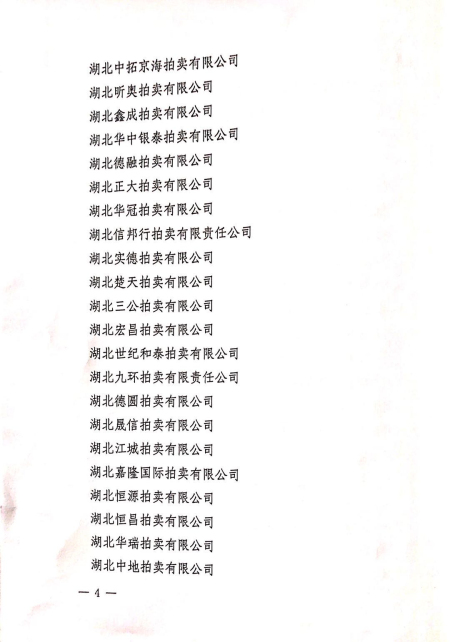 湖北中拓京海拍卖有限公司
湖北昕奥拍卖有限公司
湖北鑫成拍卖有限公司
湖北华中银泰拍卖有限公司
湖北德融拍卖有限公司
湖北正大拍卖有限公司
湖北华冠拍卖有限公司
湖北信邦行拍卖有限责任公司
湖北实德拍卖有限公司
湖北楚天拍卖有限公司
湖北三公拍卖有限公司
湖北宏昌拍卖有限公司
湖北世纪和泰拍卖有限公司
湖北九环拍卖有限责任公司
湖北德圆拍卖有限公司
湖北晟信拍卖有限公司
湖北江城拍卖有限公司
湖北嘉隆国际拍卖有限公司
湖北恒源拍卖有限公司
湖北恒昌拍卖有限公司
湖北华瑞拍卖有限公司
湖北中地拍卖有限公司
— 4 —